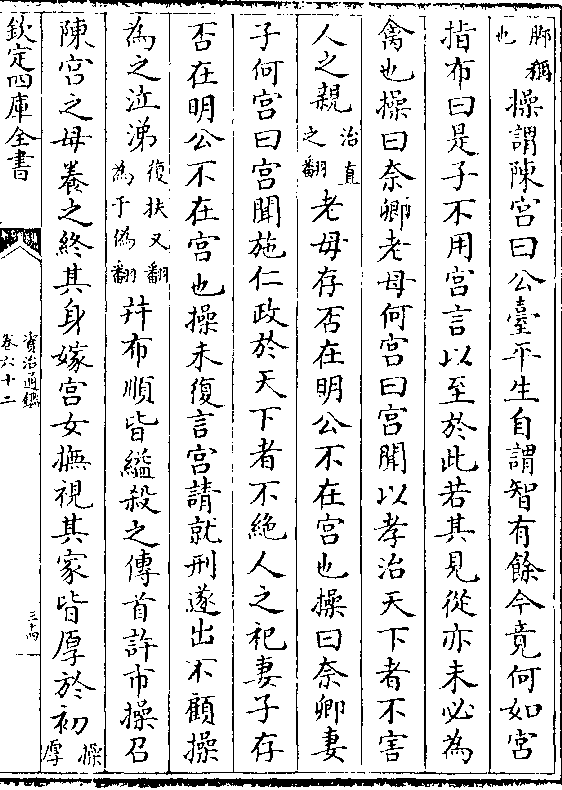 脚稱也操謂陳宮曰公臺平生自謂智有餘今竟何如宮
指布曰是子不用宮言以至於此若其見從亦未必為
禽也操曰奈卿老母何宮曰宮聞以孝治天下者不害
人之親治直之翻老母存否在明公不在宮也操曰奈卿妻
子何宮曰宮聞施仁政於天下者不絶人之祀妻子存
否在明公不在宮也操未復言宮請就刑遂出不顧操
為之泣涕復扶又翻為于偽翻并布順皆縊殺之傳首許市操召
陳宮之母養之終其身嫁宮女撫視其家皆厚於初操厚
欽定四庫全書
資治通鑑
卷六十二
三十四